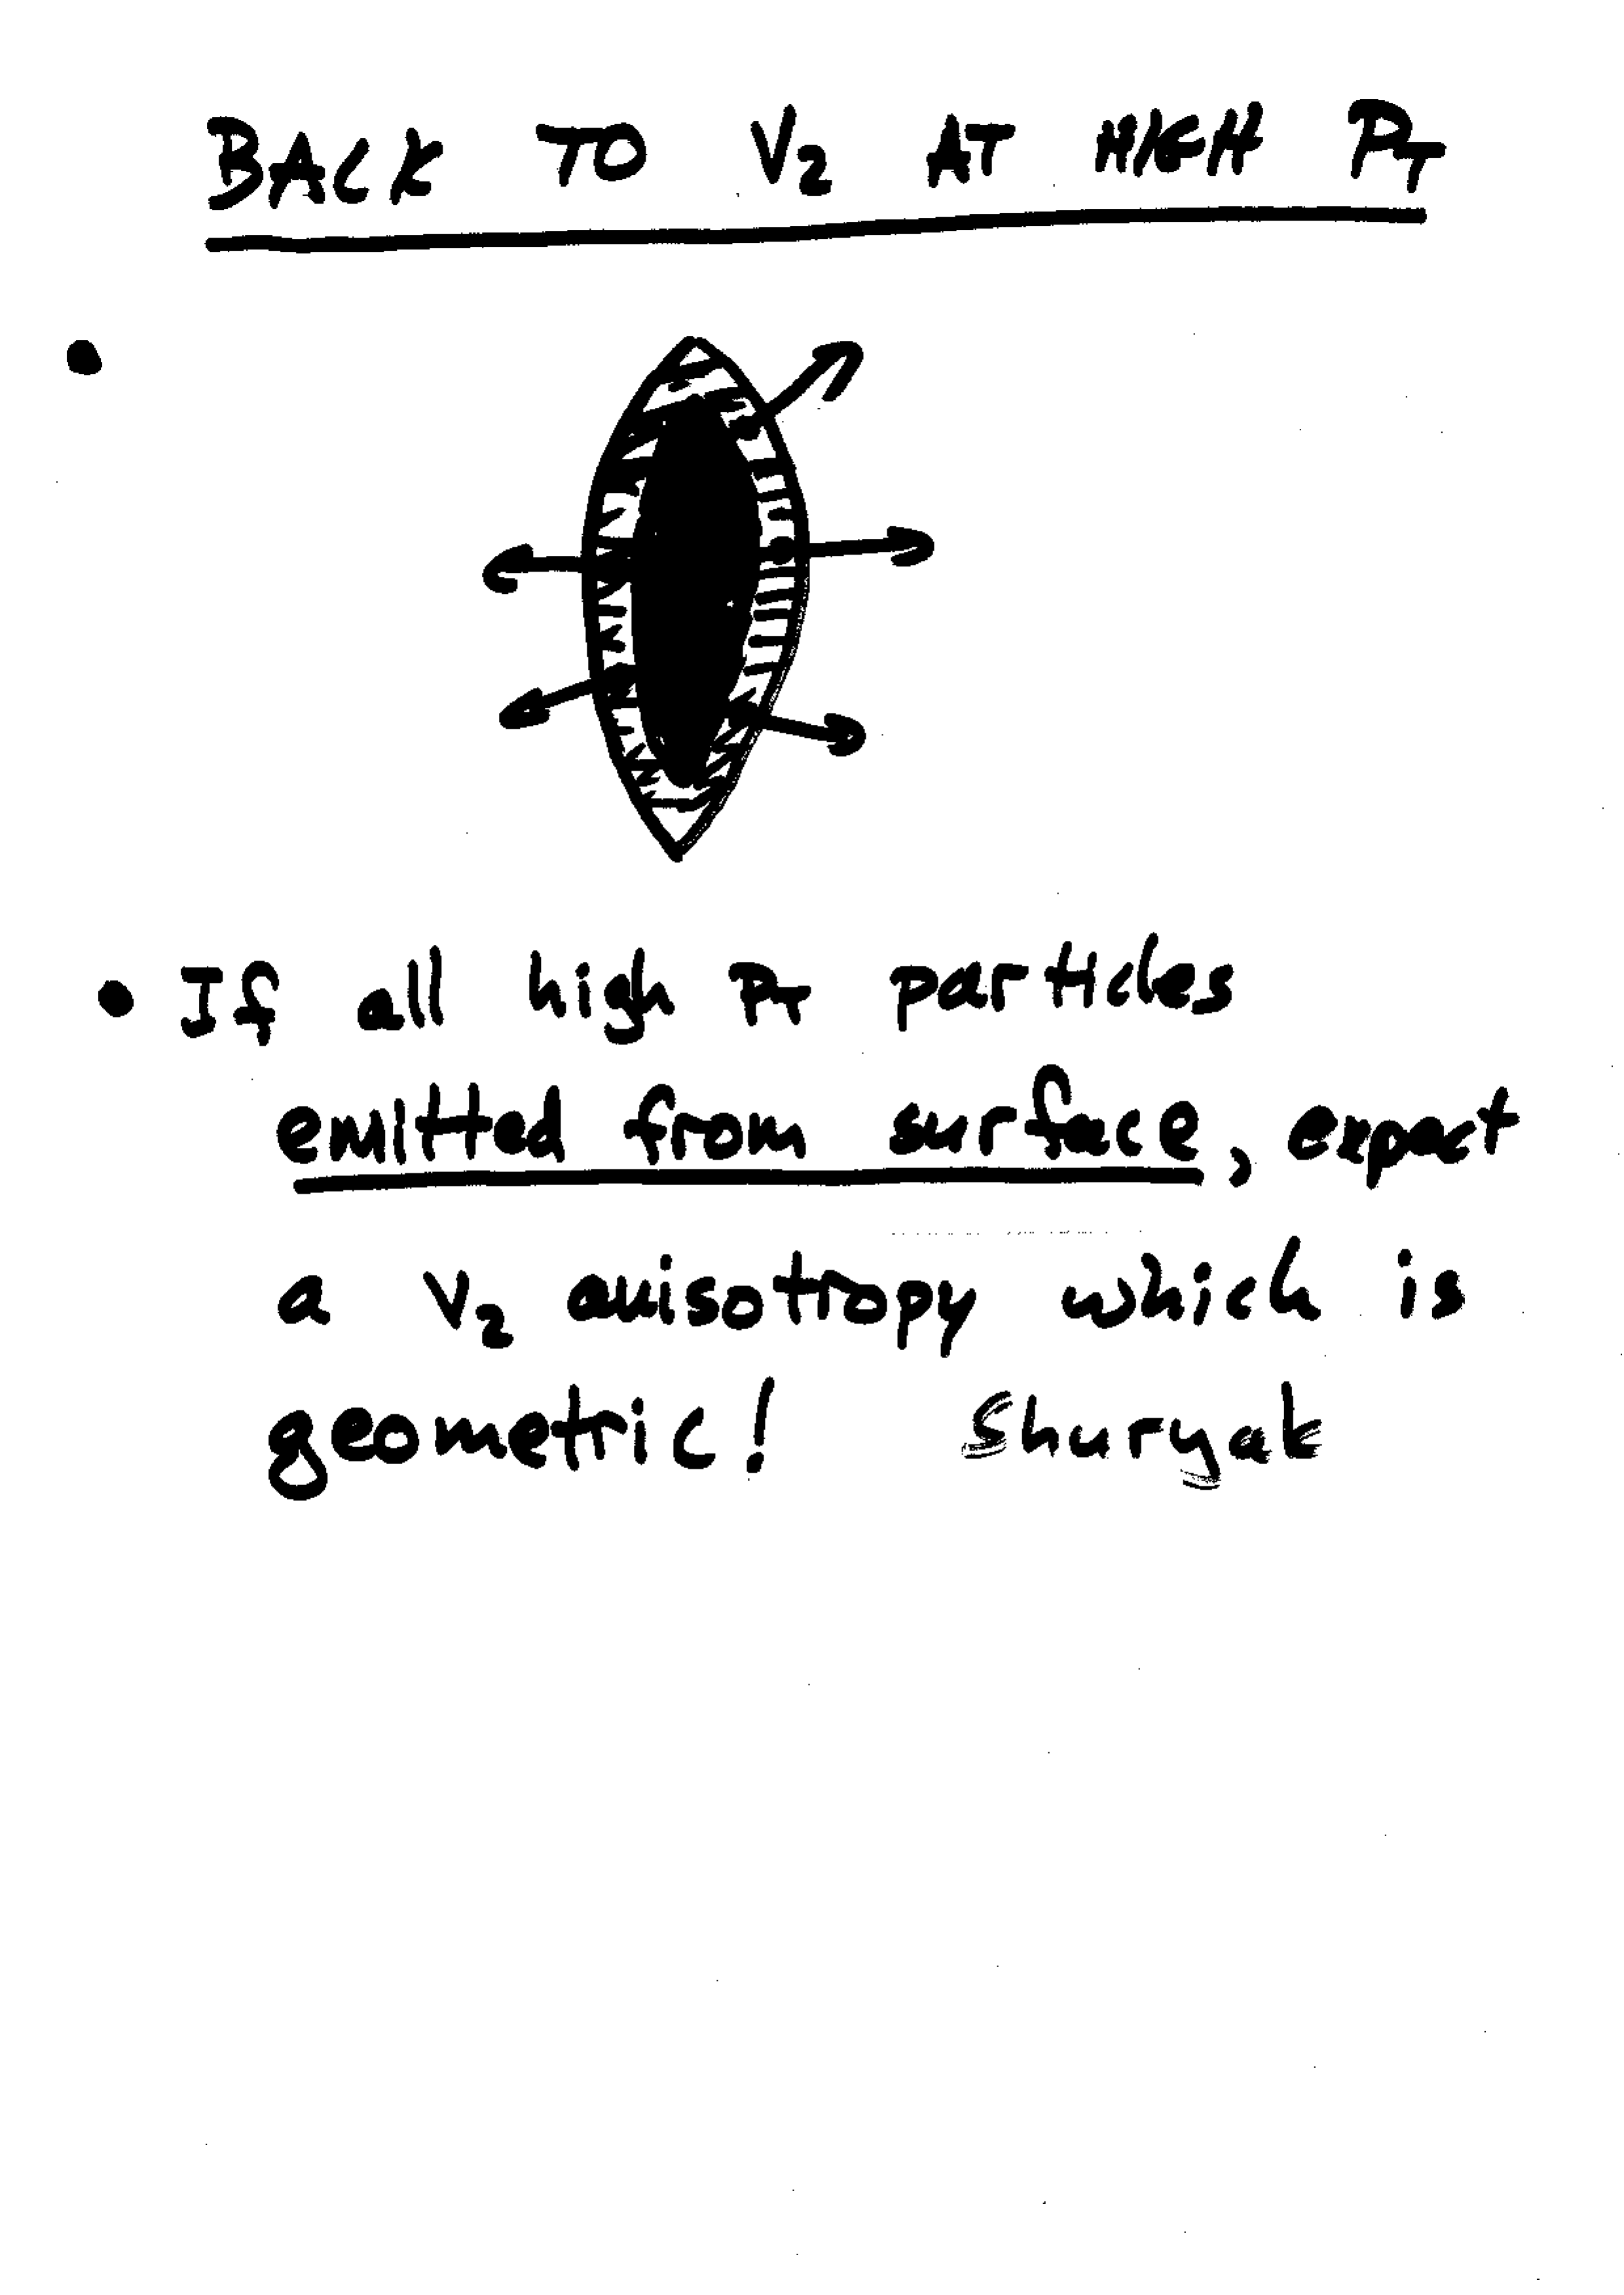 BACK TO V2 AT HIGH PT
• If all high PT particles
emitted from surface, expect
a V2 anisotropy which is
geometric! Shuryak